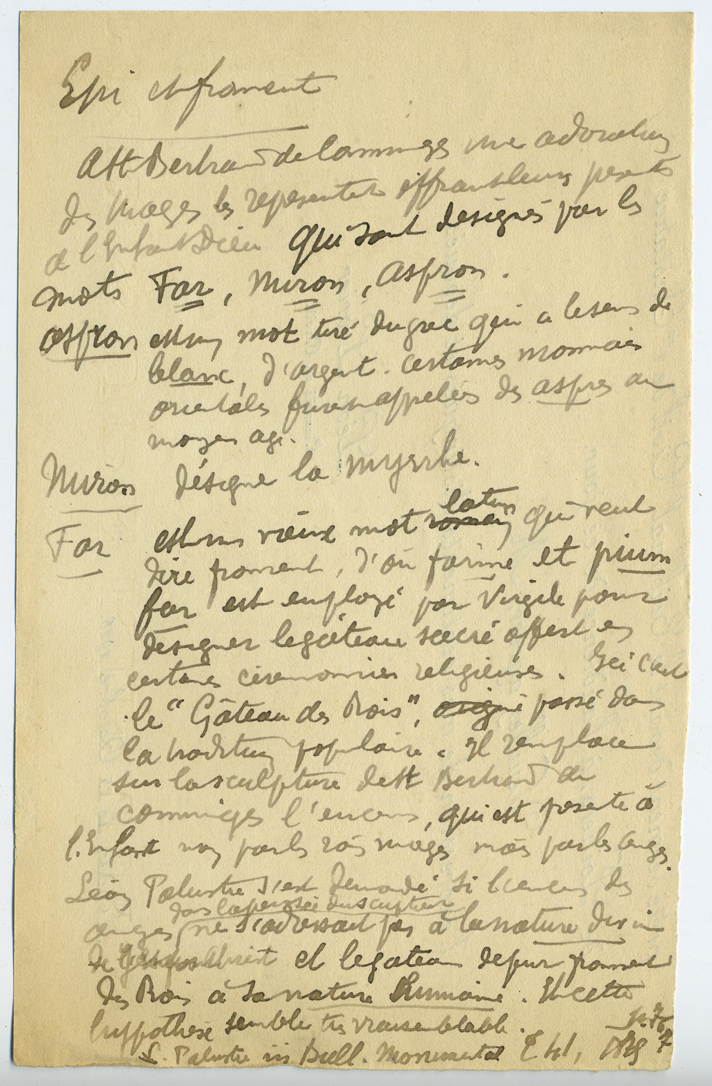 Epi et froment
A St Bertrand de Comminges une adoration
des Mages les représente offrant leurs présents
à l'Enfant Dieu qui sont désignés par les
mots Far, Miron, Aspron.
Aspron est un mot tiré du grec qui a le sens de
blanc, d'argent. Certaines monnaies
orientales furent appelées des aspres au
moyen age.
Miron désigne la myrrhe.
Far est un vieux mot latin qui veut
dire froment, d'où farine et pium
far est employé par Virgile pour
désigner le gâteau sacré offert en
certaines cérémonies religieuses. Ici c'est
le "Gâteau des Rois", passé dans
la tradition populaire. Il remplace
sur la sculpture de St Bertrand de
Comminges l'encens, qui est présenté à
l'Enfant non par les rois mages mais par les anges.
Léon Palustre s'est demandé si l'encens des
anges dans la pensée du sculpteur ne s'adressait pas à la nature divine
de Jésus Christ et le gateau de pur froment
des Rois à sa nature humaine. Et cette
hypothèse semble très vraisemblable.
L. Palustre in Bull. Monumental T 41,